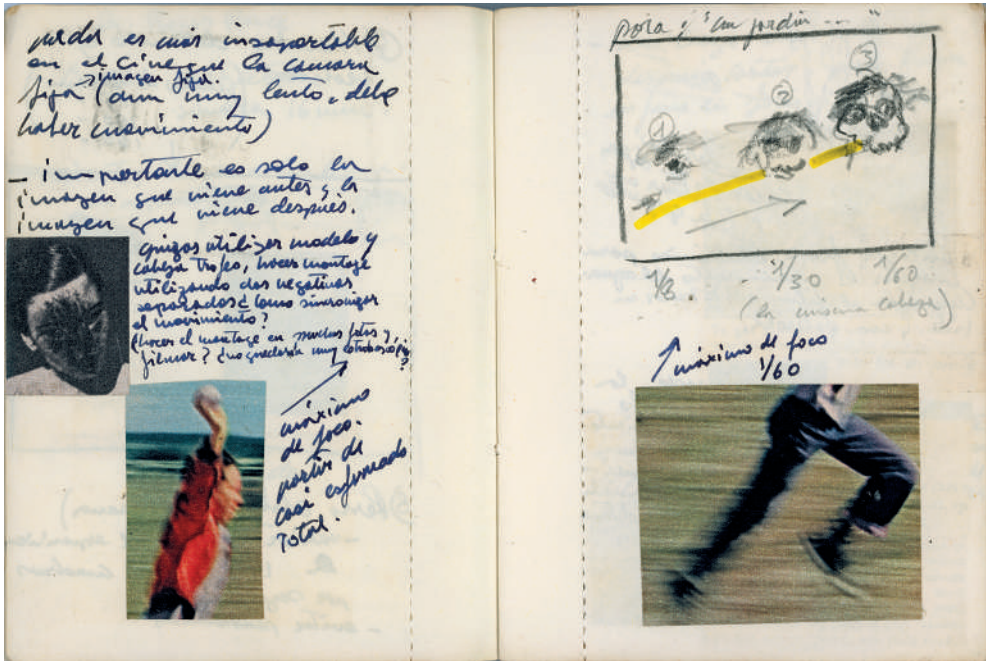 es más insoportable
en el cine que la cámara
fija (aun muy lento, debe
→ imagen fija.
haber movimiento)
– importante es solo la
imagen que viene antes y la
imagen que viene después.
quizás utilizar modelo y
cabeza trofeo, hacer montaje
utilizando dos negativos
separados ¿como sincronizar
el movimiento?
(hacer el montaje en muchas fotos y
filmar? ¿no quedaría muy
?
máximo
de foco.
partir de
casi esfumado
total.
para "un jardín ... "
1
2
3
1/8.
1/30
1/60
(la misma cabeza)
máximo de foco
1/60